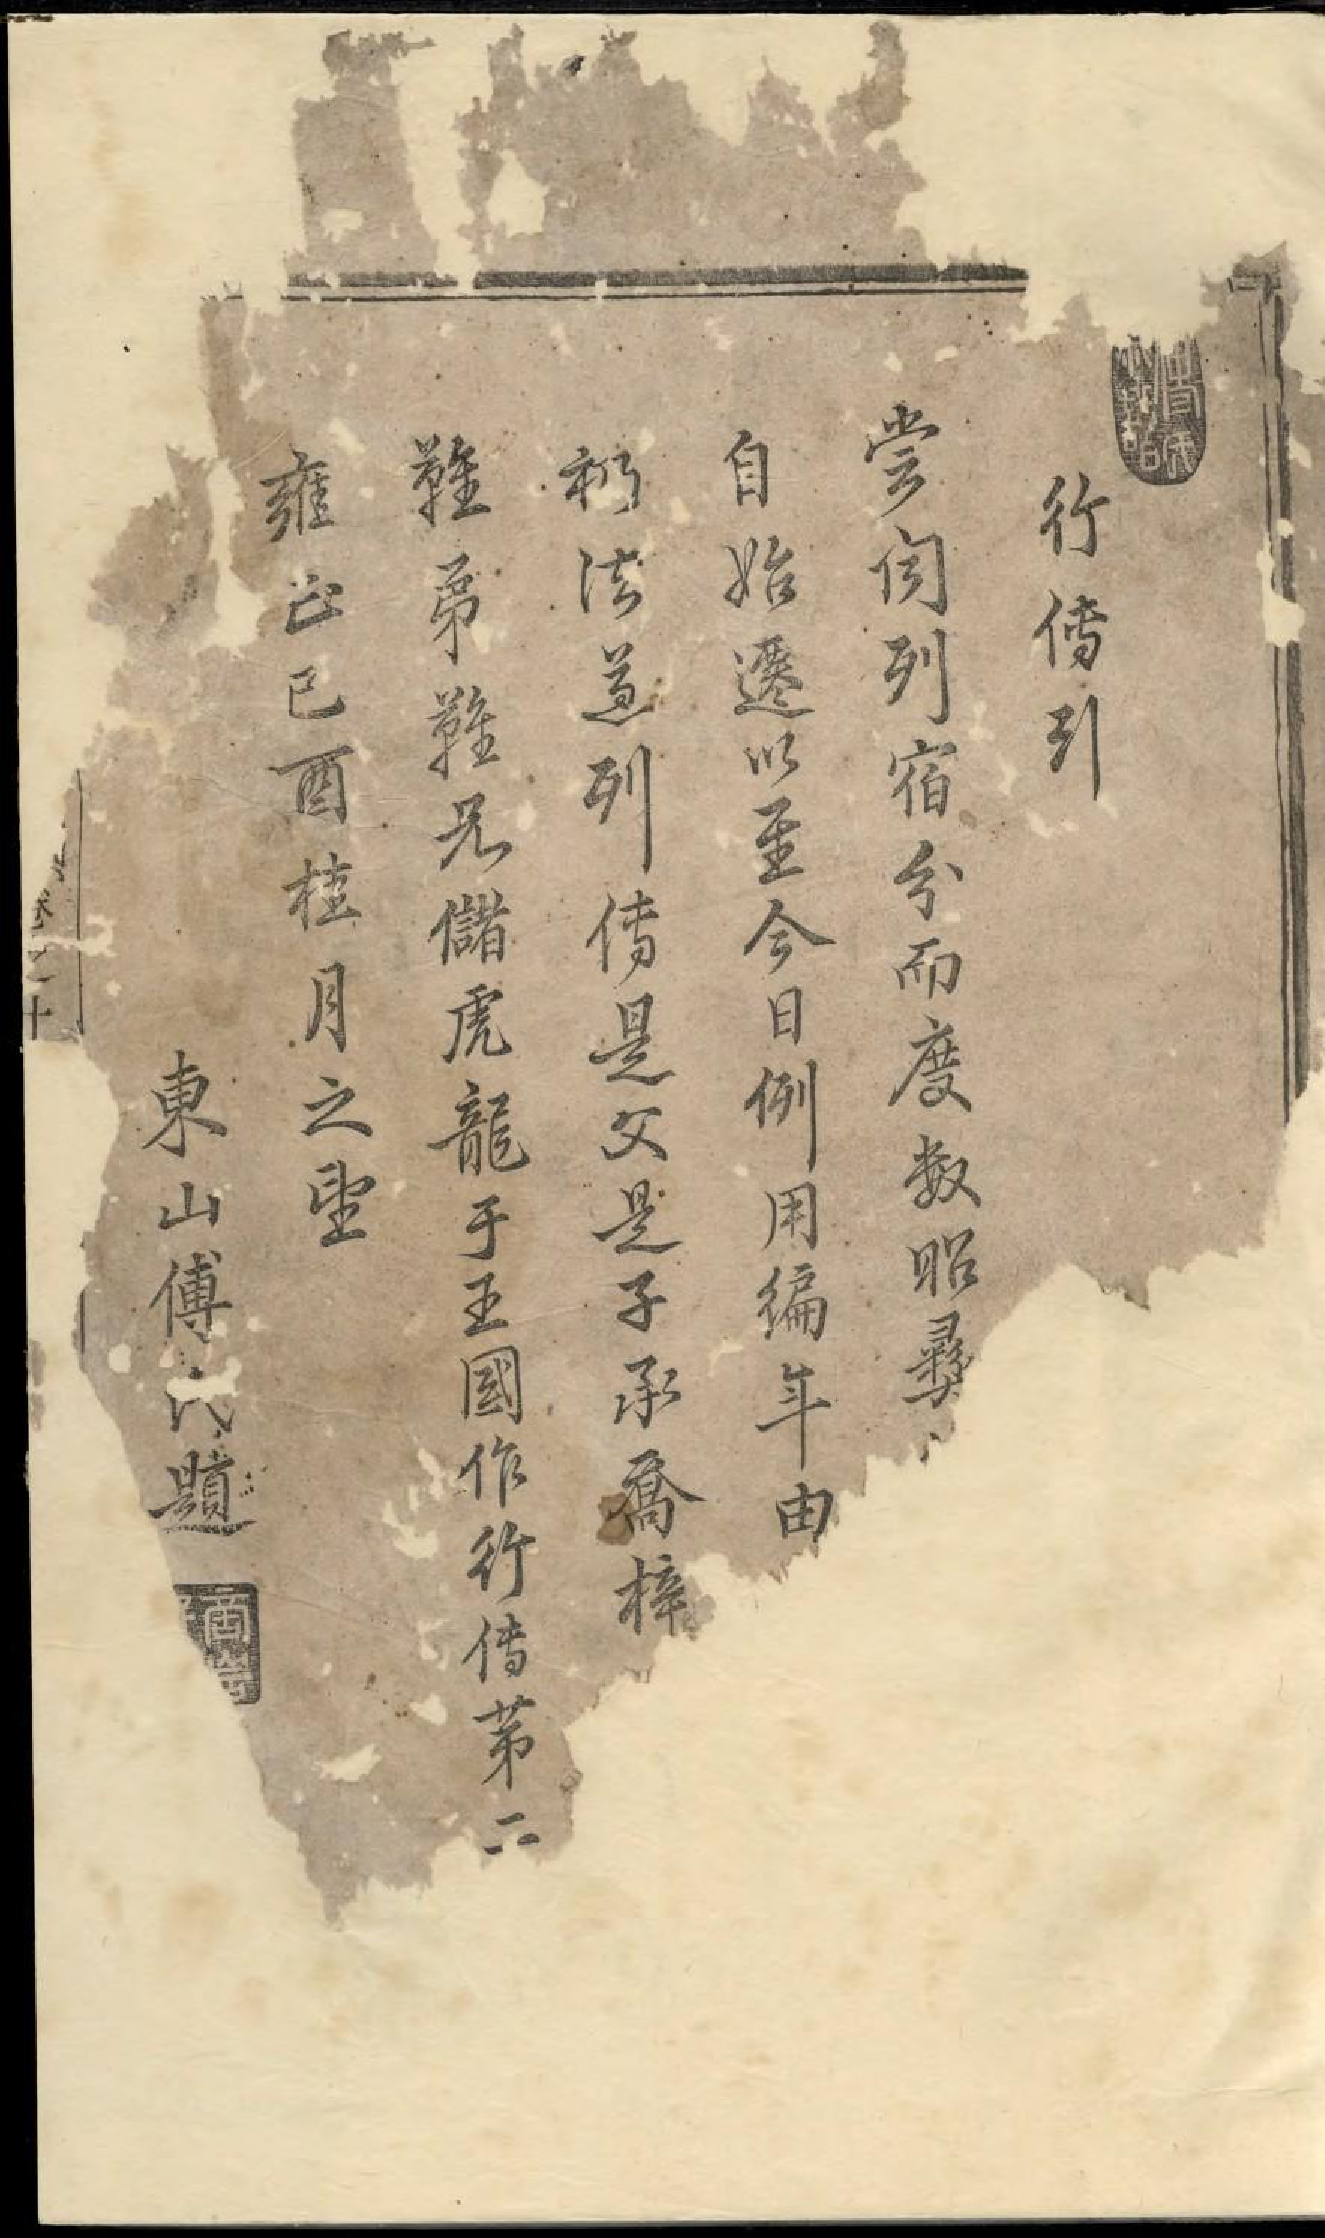 行傳引
嘗闻列宿分而度数昭彛
自始遷以至今日例用編年由
祢法並列傳是父是子承喬梓
難弟難兄儲虎龍于王國作行傳苐二
雍正已酉桂月之朢
東山傅氏題
卷之十